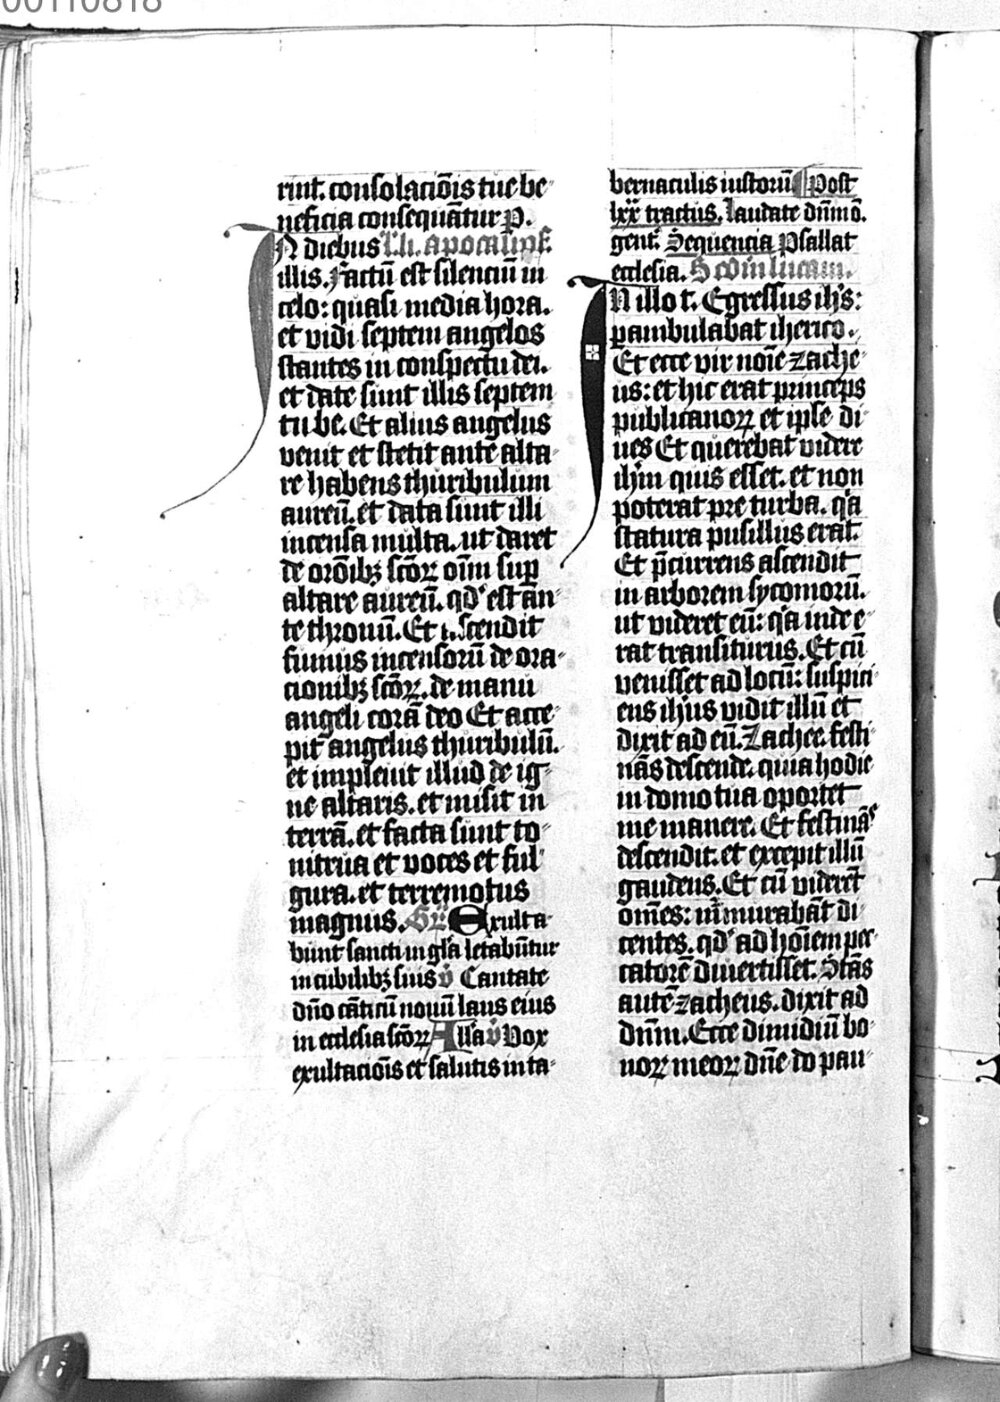 00110818
rint. consolacōis tue be
neficia consequāntur p̱.
IN diebus Lī. apocalips̄.
illis. Factū est silenciū in
celo: quasi media hora.
et vidi septem angelos
stantes in conspectu dei.
et date sunt illis septem
tube. Et alius angelus
venit et stetit ante alta
re habens thuribulum
aureū. et data sunt illi
incensa multa. ut daret
de orōibꝫ scōꝝ oīm sup
altare aureū. qd' est an
te thronū. Et scendit
fumus incensorū de ora
cionibꝫ scōꝝ. de manu
angeli corā deo Et acce
pit angelus thuribulū.
et impleuit illud de ig
ne altaris. et misit in
terrā. et facta sunt to
nitrua et voces et ful
gura. et terremotus
magnus. Gr̄. Exulta
bunt sancti in gl̄a letabūtur
in cubilibꝫ suis v̄ Cantate
dn̄o cāticū nouū laus eius
in ecclesia scōꝝ All̄a v̄ Vox
exultaciōis et salutis in ta
bernaculis iustorū Post
lxx̄ tractus. laudate dn̄m ō.
gent'. Sequencia Psallat
ecclesia. S com̄ lucam.
IN illo t. Egressus ih̄s:
ꝑambulabat iherico.
Et ecce vir noīe zache
us: et hic erat princeps
publicanoꝝ et ipse di
ues Et querebat videre
ih̄m quis esset. et non
poterat pre turba. qͥa
statura pusillus erat.
Et p̄currens ascendit
in arborem sycomorū.
ut videret eū: qͥa inde e
rat transiturus. Et cū
venisset ad locū: suspici
ens ih̄us vidit illū et
dixit ad eū. Zachee. festi
nās descende. quia hodie
in domo tua oportet
me manere. Et festinās
descendit. et excepit illū
gaudens. Et cū viderēt
om̄es: m̄murabāt di
centes. qd' ad hoīem pec
catorē diuertisset. Stās
autē zacheus. dixit ad
dn̄m. Ecce dimidiū bo
noꝝ meoꝝ dn̄e do pau